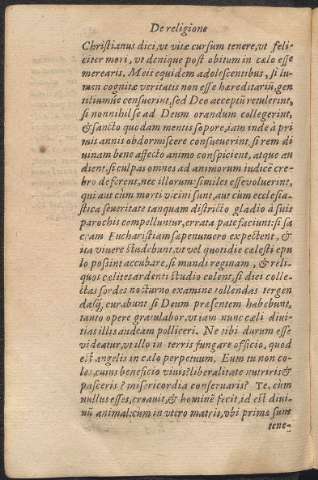 De religione
Christianus dici, vt vitæ cursum tenere, vt feli-
citer mori, vt denique post obitum in cælo esse
merearis. Meis equidem adolescentibus, si lu-
men cognitæ veritatis non esse hæreditariũ, gen
tiliumue censuerint, sed Deo acceptũ retulerint,
si nonnihil se ad Deum orandum collegerint,
& sancto quodam mentis sopore, iam inde à pri
mis annis obdormiscere consueuerint, si rem di
uinam bene affecto animo conspicient, atque au
dient, si culpas omnes ad animorum iudicẽ cre-
bro deferent, nec illorum similes esse voluerint,
qui aut cùm morti vicini sunt, aut cùm ecclesia-
stica seueritate tanquam districto gladio à suis
parochis compelluntur, errata patefaciunt: si sa
cram Eucharistiam sæpenumero expectent, &
ita viuere studebunt, vt vel quotidie cælesti epu
lo possint accubare, si mundi reginam, & reli-
quos cælites ardenti studio colent, si diei colle-
ctas sordes nocturno examine tollendas tergen
dasq́; curabunt, si Deum præsentem habebunt,
tanto opere gratulabor, vt iam nunc cæli diui-
tias illis audeam polliceri. Ne tibi durum esse
videatur, vt illo in terris fungare officio, quod
est angelis in cælo perpetuum. Eum tu non co-
les, cuius beneficio viuis? liberalitate nutriris &
pasceris? misericordia conseruaris? Te, cùm
nullus esses, creauit, & hominẽ fecit, id est diui-
nũ animal: cùm in vtero matris, vbi primo sunt
tene-